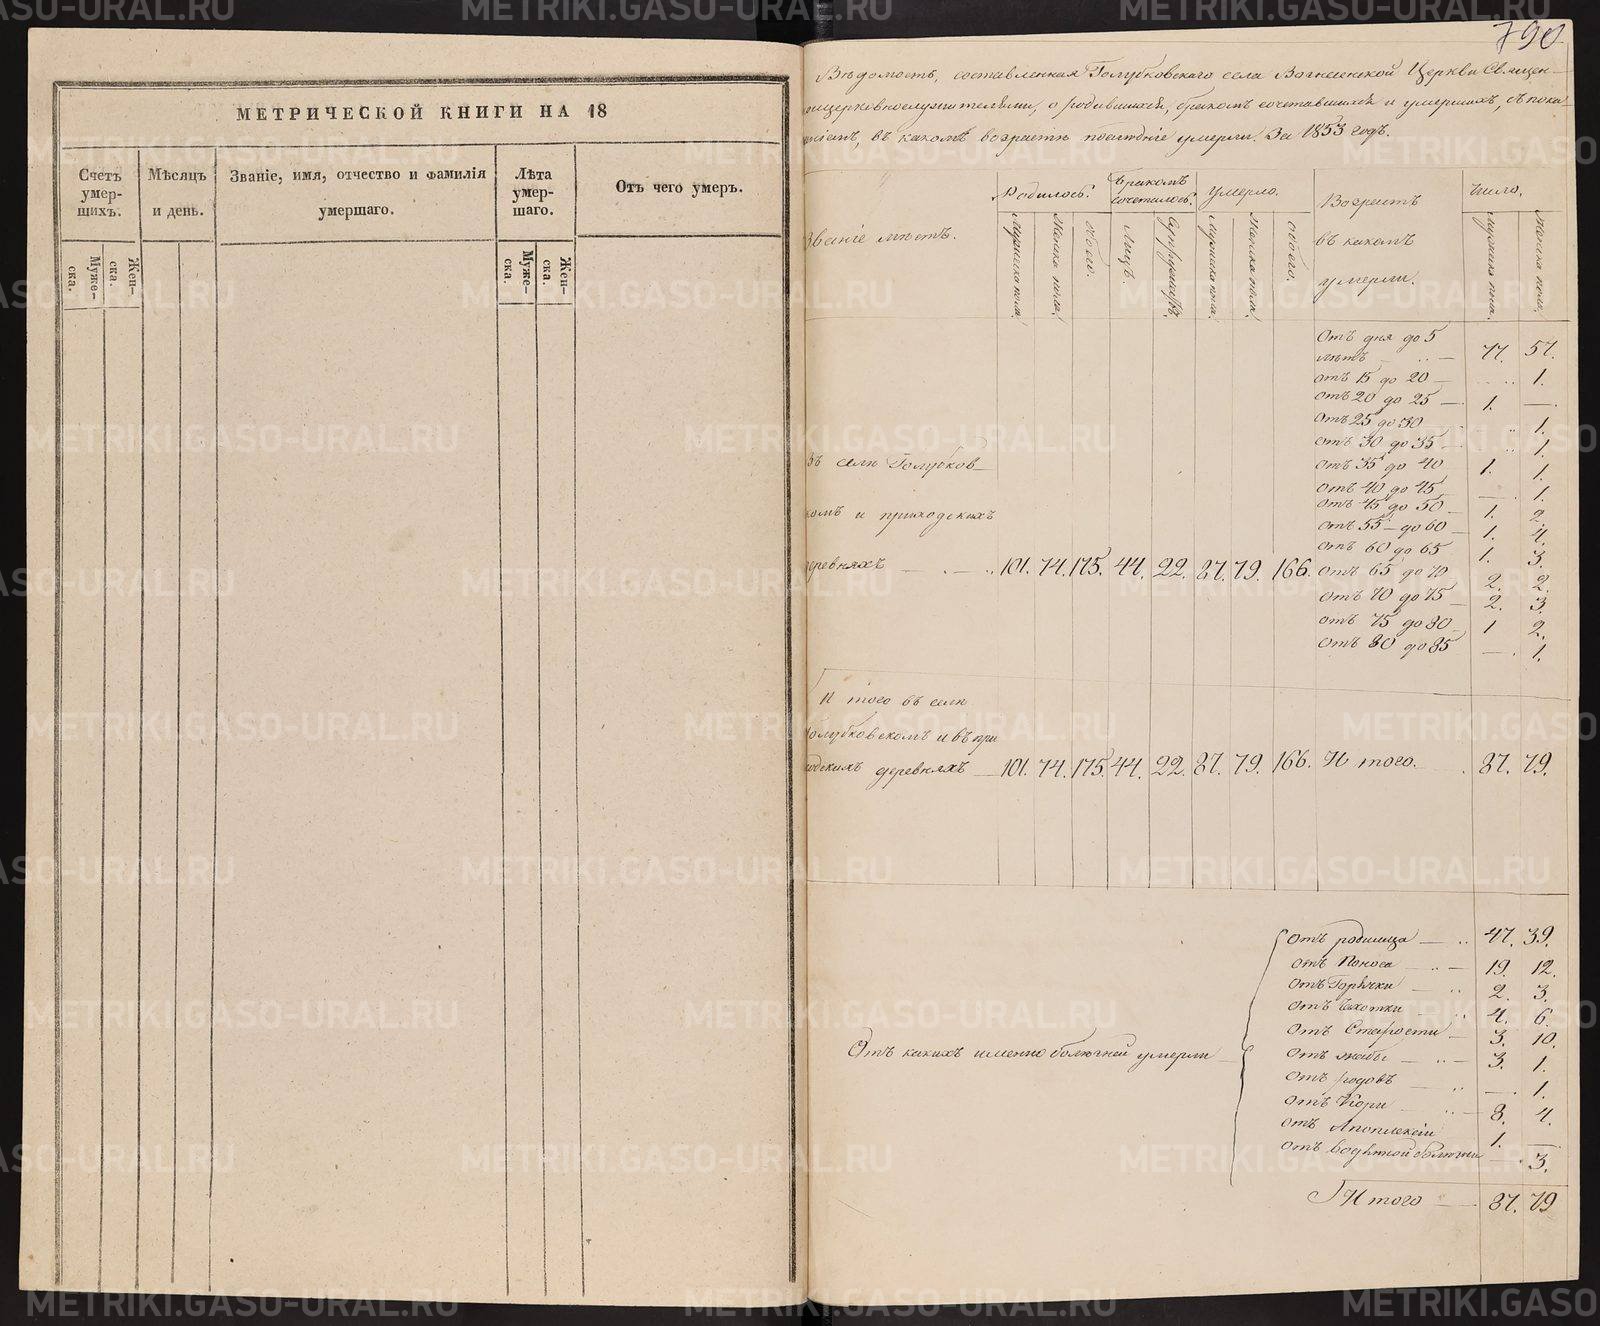 МЕТРИЧЕСКОЙ КНИГИ НА 18
Счетъ умер-шихъ.
Мѣсяцъ и день.
Званіе, имя, отчество и фамилія умершаго.
Лѣта умер-шаго.
Отъ чего умеръ.
Муже-ска.
Жен-ска.
Муже-ска.
Жен-ска.
790
Вѣдомость, составленная Голубковскаго села Вознесенской Церкви Священ-
ноцерковнослужителями, о родившихся, бракомъ сочетавшихся и умершихъ, съ пока-
заніемъ, въ какомъ возрастѣ послѣдніе умерли. За 1853 годъ.
Званіе мѣстъ.
Родилось.
Бракомъ сочетилось.
Умерло.
Возрастъ въ какомъ умерли.
Число.
Мужеска пола.
Женска пола.
Обоего.
Лицъ.
Супружествъ.
Мужеска пола.
Женска пола.
Обоего.
Мужеска пола.
Женска пола.
Отъ дня до 5
лѣтъ 77. 57.
отъ 15 до 20 — 1.
отъ 20 до 25 — 1. —
отъ 25 до 30 1.
отъ 30 до 35 1.
отъ 35 до 40 1. 1.
отъ 40 до 45 — 1.
отъ 45 до 50 — 1. 2.
отъ 55 до 60 — 1. 4.
отъ 60 до 65 1. 3.
отъ 65 до 70 2. 2.
отъ 70 до 75 2. 3.
отъ 75 до 80 1 2.
отъ 80 до 85 — 1.
Въ селѣ Голубков-
комъ и приходскихъ
деревняхъ 101. 74. 175. 44. 22. 87. 79. 166.
И того въ селѣ
Голубковскомъ и въ при
ходскихъ деревняхъ 101. 74. 175. 44. 22. 87. 79. 166. И того. 87. 79.
Отъ какихъ именно болѣзней умерли
отъ родимца 47. 39.
отъ Поноса 19. 12.
отъ Горячки 2. 3.
отъ Чахотки 4. 6.
отъ Старости 3. 10.
отъ жабы 3. 1.
отъ родовъ — 1.
отъ Кори 8. 4.
отъ Апоплексіи 1. —
отъ водяной болѣзни — 3.
И того 87. 79
METRIKI.GASO-URAL.RU